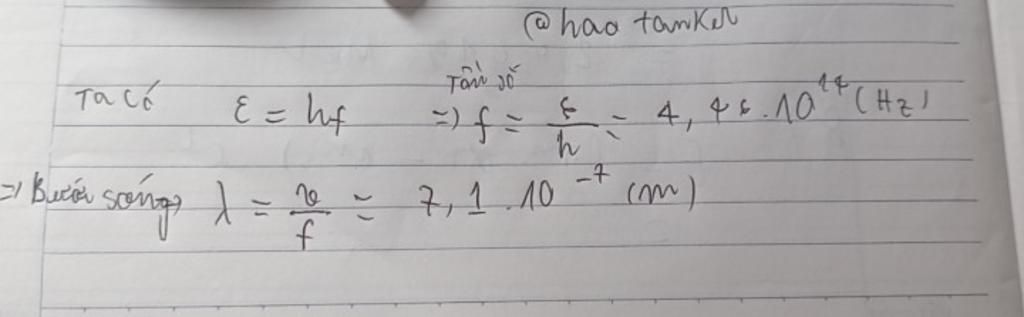 @hao tanker
Tần số
Ta có ε = hf => f = ε/h = 4,48.10^14 (Hz)
=> Bước sóng λ = v/f = 7,1.10^-7 (m)